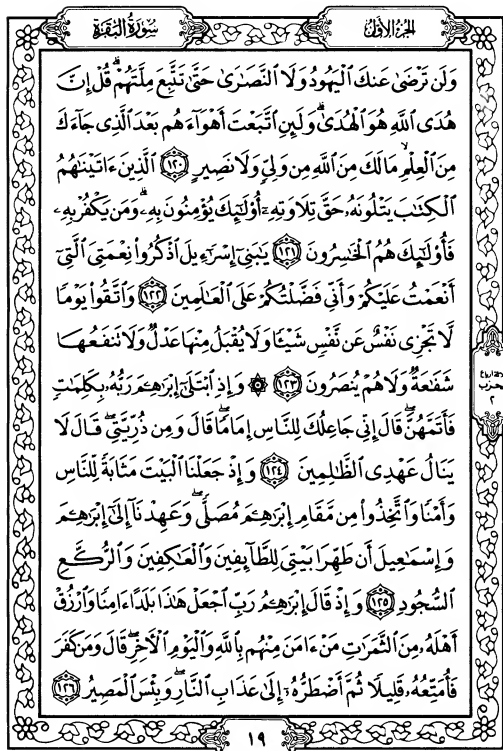 الجزء الأول
سورة البقرة
وَلَن تَرْضَىٰ عَنكَ ٱلْيَهُودُ وَلَا ٱلنَّصَٰرَىٰ حَتَّىٰ تَتَّبِعَ مِلَّتَهُمْ ۗ قُلْ إِنَّ
هُدَى ٱللَّهِ هُوَ ٱلْهُدَىٰ ۗ وَلَئِنِ ٱتَّبَعْتَ أَهْوَآءَهُم بَعْدَ ٱلَّذِى جَآءَكَ
مِنَ ٱلْعِلْمِ ۙ مَا لَكَ مِنَ ٱللَّهِ مِن وَلِىٍّ وَلَا نَصِيرٍ ١٢٠ ٱلَّذِينَ ءَاتَيْنَٰهُمُ
ٱلْكِتَٰبَ يَتْلُونَهُۥ حَقَّ تِلَاوَتِهِۦٓ أُو۟لَٰٓئِكَ يُؤْمِنُونَ بِهِۦ ۗ وَمَن يَكْفُرْ بِهِۦ
فَأُو۟لَٰٓئِكَ هُمُ ٱلْخَٰسِرُونَ ١٢١ يَٰبَنِىٓ إِسْرَٰٓءِيلَ ٱذْكُرُوا۟ نِعْمَتِىَ ٱلَّتِىٓ
أَنْعَمْتُ عَلَيْكُمْ وَأَنِّى فَضَّلْتُكُمْ عَلَى ٱلْعَٰلَمِينَ ١٢٢ وَٱتَّقُوا۟ يَوْمًا
لَّا تَجْزِى نَفْسٌ عَن نَّفْسٍ شَيْـًٔا وَلَا يُقْبَلُ مِنْهَا عَدْلٌ وَلَا تَنفَعُهَا
شَفَٰعَةٌ وَلَا هُمْ يُنصَرُونَ ١٢٣ ۞ وَإِذِ ٱبْتَلَىٰٓ إِبْرَٰهِـۧمَ رَبُّهُۥ بِكَلِمَٰتٍ
فَأَتَمَّهُنَّ ۖ قَالَ إِنِّى جَاعِلُكَ لِلنَّاسِ إِمَامًا ۖ قَالَ وَمِن ذُرِّيَّتِى ۖ قَالَ لَا
يَنَالُ عَهْدِى ٱلظَّٰلِمِينَ ١٢٤ وَإِذْ جَعَلْنَا ٱلْبَيْتَ مَثَابَةً لِّلنَّاسِ
وَأَمْنًا وَٱتَّخِذُوا۟ مِن مَّقَامِ إِبْرَٰهِـۧمَ مُصَلًّى ۖ وَعَهِدْنَآ إِلَىٰٓ إِبْرَٰهِـۧمَ
وَإِسْمَٰعِيلَ أَن طَهِّرَا بَيْتِىَ لِلطَّآئِفِينَ وَٱلْعَٰكِفِينَ وَٱلرُّكَّعِ
ٱلسُّجُودِ ١٢٥ وَإِذْ قَالَ إِبْرَٰهِـۧمُ رَبِّ ٱجْعَلْ هَٰذَا بَلَدًا ءَامِنًا وَٱرْزُقْ
أَهْلَهُۥ مِنَ ٱلثَّمَرَٰتِ مَنْ ءَامَنَ مِنْهُم بِٱللَّهِ وَٱلْيَوْمِ ٱلْءَاخِرِ ۖ قَالَ وَمَن كَفَرَ
فَأُمَتِّعُهُۥ قَلِيلًا ثُمَّ أَضْطَرُّهُۥٓ إِلَىٰ عَذَابِ ٱلنَّارِ ۖ وَبِئْسَ ٱلْمَصِيرُ ١٢٦
٢
١٩